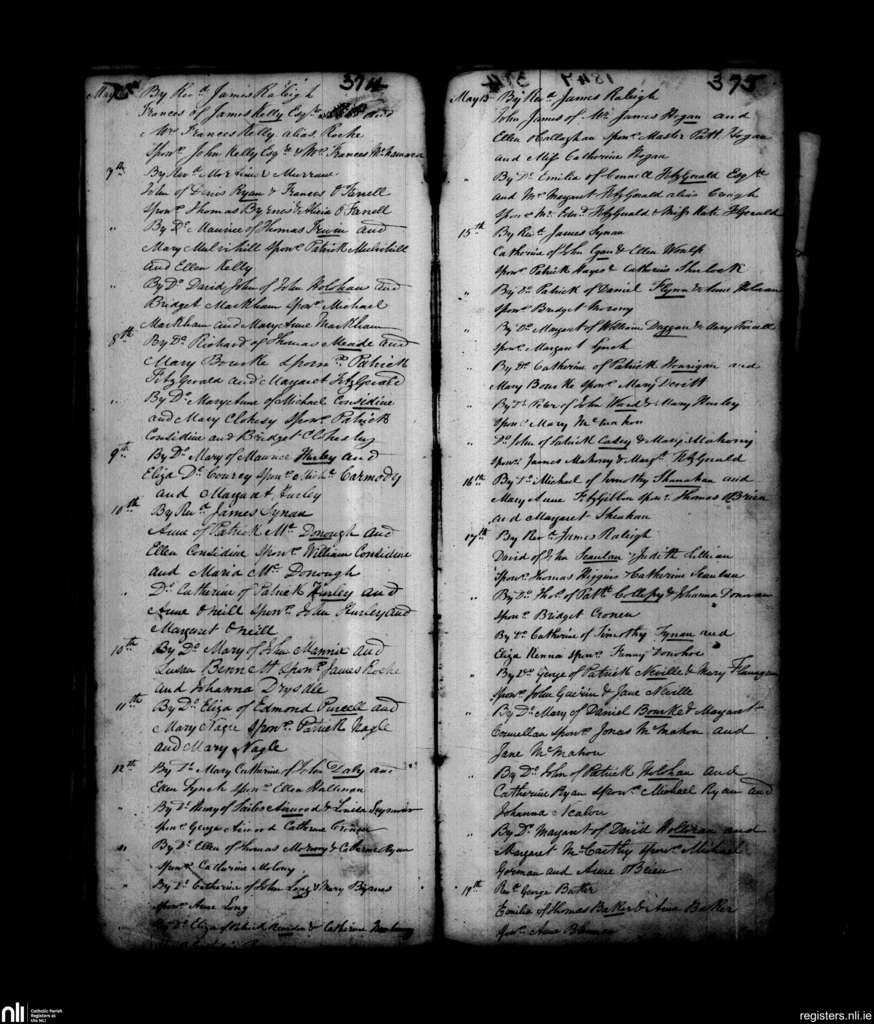 374
May 5th By Revd. James Raleigh
Frances of James Kelly Esqr. and
Mrs. Frances Kelly alias Roche
Sponrs. John Kelly Esqre & Mrs. Frances McNamara
7th By Revd. Mortimer
John of Denis Ryan & Frances O'Farrell
Sponrs. Thomas Byrnes & Alicia O'Farrell
" By Do. Maurice of Thomas Irwin and
Mary Mulvihill Sponrs. Patrick Mulvihill
and Ellen Kelly
" By Do. David John of John Holohan and
Bridget Markham Sponrs. Michael
Markham and Mary Anne Markham
8th By Do. Richard of Thomas Meade and
Mary Bourke Sponrs. Patrick
FitzGerald and Margaret FitzGerald
" By Do. Mary Anne of Michael Considine
and Mary Clohesy Sponrs. Patrick
Considine and Bridget Clohesy
9th By Do. Mary of Maurice Hurley and
Eliza De Courcy Sponrs. Carmody
and Margaret Hurley
10th By Revd. James Synan
Anne of Patrick Mc Donough and
Ellen Considine Sponrs. William Considine
and Maria Mc Donough
" Do. Catherine of Patrick Hurley and
Anne O'Neill Sponrs. John Hurley and
Margaret O'Neill
10th By Do. Mary of John Mannix and
Bennett Sponrs. James Roche
and Johanna Drysdle
11th By Do. Eliza of Edmond Purcell and
Mary Nagle Sponrs. Patrick Nagle
and Mary Nagle
12th By Do. Mary Catherine of John Daly and
Ellen Lynch Sponrs. Ellen Hallinan
" By Do. Henry of Atwood & Louisa Seymour
Sponrs. George Atwood Catherine Cronin
" By Do. Ellen of Thomas Morony & Catherine Ryan
Sponrs. Catherine Molony
" By Do. Catherine of John Long & Mary Byrnes
Sponrs. Anne Long
" By Do. Eliza of Patrick & Catherine
375
May 13 By Revd. James Raleigh
John James of Mr. James Hogan and
Ellen O'Callaghan Sponrs. Master Patt. Hogan
and Miss Catherine Hogan
By Do. Emilia of Connell FitzGerald Esqre
and Mrs. Margaret FitzGerald alias Creagh
Sponrs. Mr. Edwd. FitzGerald & Miss Kate FitzGerald
15th By Revd. James Synan
Catherine of John Egan & Ellen
Sponrs. Patrick Hayes & Catherine Sherlock
" By Do. Patrick of Daniel Flynn & Anne
Sponrs. Bridget
" By Do. Margaret of William Duggan & Mary
Sponrs. Margaret Lynch
" By Do. Catherine of Patrick Hourigan and
Mary Bourke Sponrs. Mary Devitt
" By Do. Peter of John Ward & Mary Hurley
Sponrs. Mary McMahon
" Do. John of Patrick Casey & Mary Mahony
Sponrs. James Mahony & Margt. FitzGerald
16th By Do. Michael of Timothy Shanahan and
Mary Anne FitzGibbon Sponrs. Thomas O'Brien
and Margaret Sheehan
17th By Revd. James Raleigh
David of John Scanlan & Judith Cillian
Sponrs. Thomas Higgins & Catherine Scanlan
" By Do. Thos. of Patk. Collopy & Johanna Donovan
Sponrs. Bridget Cronin
By Do. Catherine of Timothy Synan and
Eliza Nenna Sponrs. Fanny Donohoe
" By Do. George of Patrick Neville & Mary Flanagan
Sponrs. John Guerin & Jane Neville
" By Do. Mary of Daniel Bourke & Margaret
Connellan Sponrs. Jonas McMahon and
Jane McMahon
" By Do. John of Patrick Holohan and
Catherine Ryan Sponrs. Michael Ryan and
Johanna Nealon
" By Do. Margaret of David Holloran and
Margaret McCarthy Sponrs. Michael
Gorman and Anne O'Brien
19th Revd. George Baker
Emilia of Thomas Baker & Anne Baker
Sponrs. Anne
nli Catholic Parish
Registers at
the NLI
registers.nli.ie